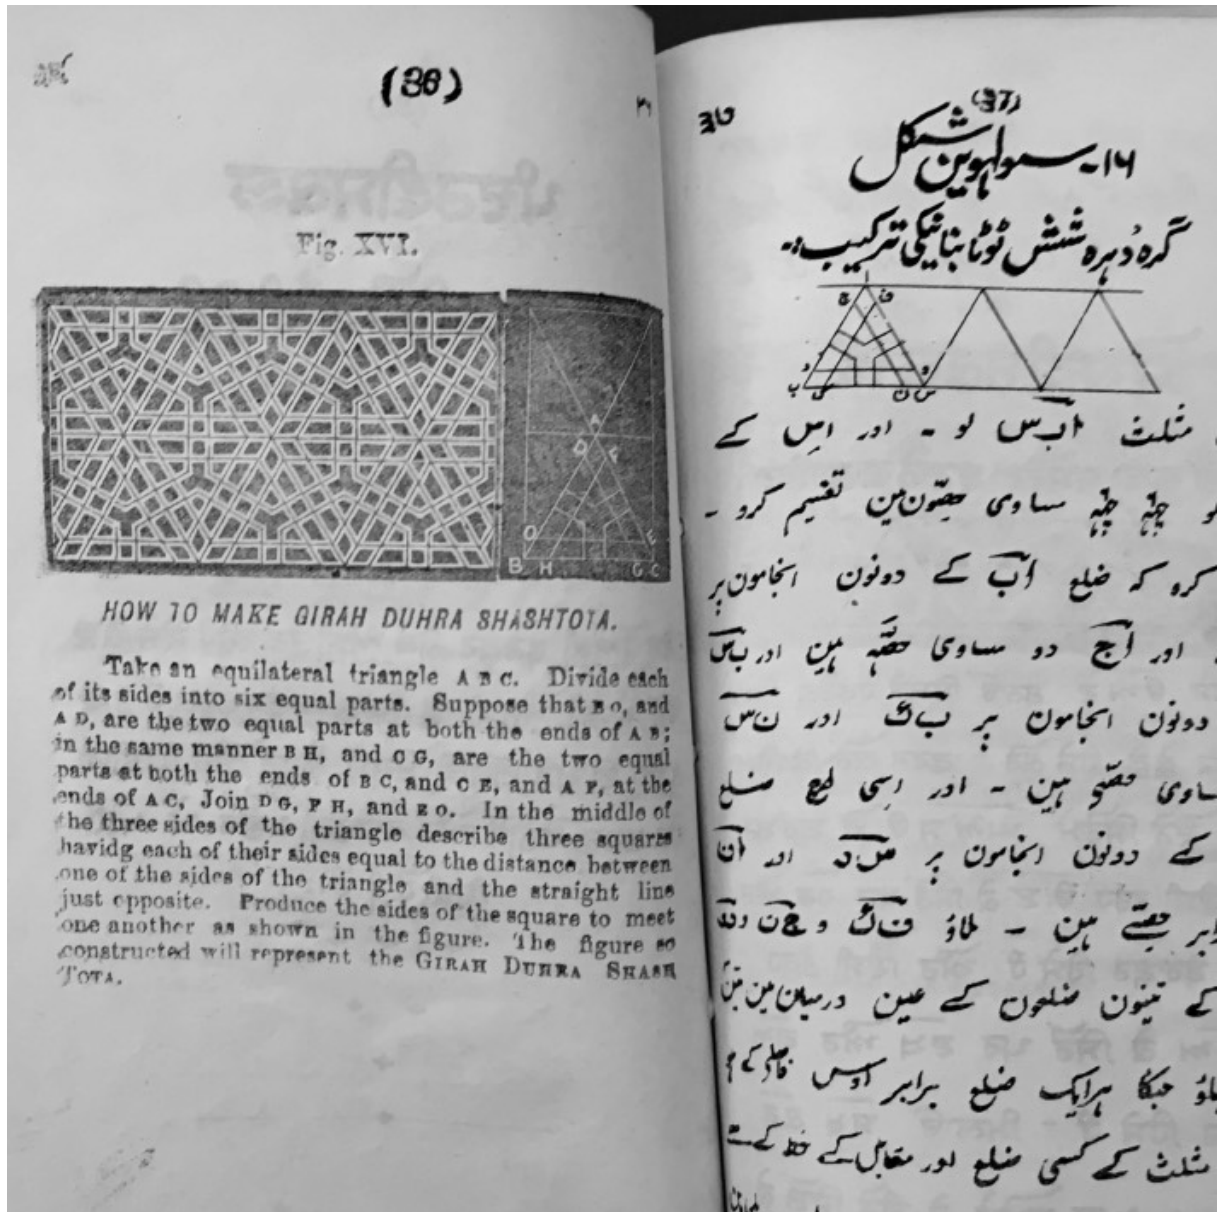 (36)
Fig. XVI.
A
D F
O E
B H G C
HOW TO MAKE GIRAH DUHRA SHASHTOTA.
Take an equilateral triangle A B C. Divide each
of its sides into six equal parts. Suppose that B O, and
A D, are the two equal parts at both the ends of A B;
in the same manner B H, and C G, are the two equal
parts at both the ends of B C, and C E, and A F, at the
ends of A C, Join D G, F H, and E O. In the middle of
the three sides of the triangle describe three squares
havidg each of their sides equal to the distance between
one of the sides of the triangle and the straight line
just opposite. Produce the sides of the square to meet
one another as shown in the figure. The figure so
constructed will represent the GIRAH DUHRA SHASH
TOTA.
(37)
੩੭
۱۶۔ سولہوین شکل
گرہ دُہرہ شش ٹوٹا بنانیکی ترکیب:۔
مثلث اب س لو ۔ اور اس کے
چھہ چھہ مساوی حصّون مین تقسیم کرو ۔
کرو کہ ضلع اب کے دونون انجامون پر
اور اج دو مساوی حصّہ ہین اور ب س
دونون انجامون پر ب گ اور ن س
حصّے ہین ۔ اور اسی طرح ضلع
کے دونون انجامون پر س د اور
حصّے ہین ۔ ملاؤ ف گ و ج ن
کے تینون ضلعون کے عین درمیان مین تین
جسکا ہر ایک ضلع برابر اوس فاصلے کے
مثلث کے کسی ضلع اور مقابل کے خط کے